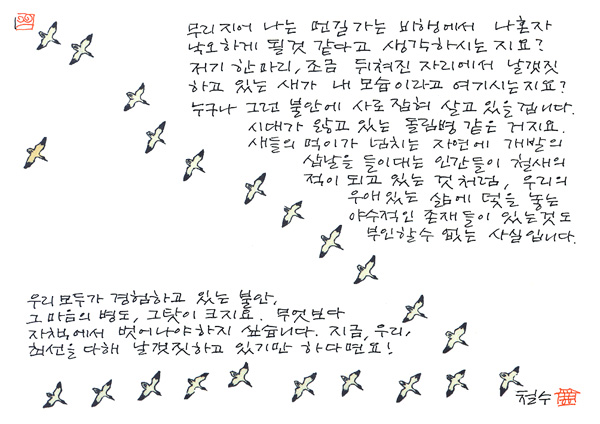 무리지어 나는 먼길가는 비행에서 나혼자
낙오하게 될것 같다고 생각하시는지요?
저기 한마리, 조금 뒤쳐진 자리에서 날갯짓
하고 있는 새가 내 모습이라고 여기시는지요?
누구나 그런 불안에 사로잡혀 살고있을겁니다.
시대가 앓고 있는 돌림병 같은 거지요.
새들의 먹이가 넘치는 자연에 개발의
삽날을 들이대는 인간들이 철새의
적이 되고 있는 것처럼, 우리의
우애있는 삶에 덫을 놓는
야수적인 존재들이 있는것도
부인할수 없는 사실입니다.
우리모두가 경험하고 있는 불안,
그 마음의 병도, 그탓이 크지요. 무엇보다
자책에서 벗어나야하지 싶습니다. 지금, 우리,
최선을다해 날갯짓하고 있기만 하다면요!
철수